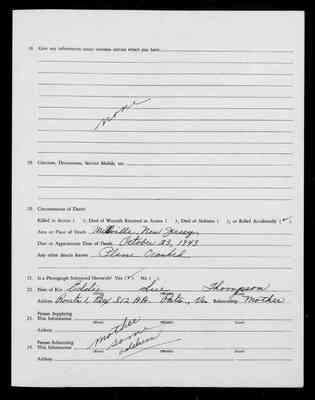 18. Give any information about overseas service which you have
none
19. Citations, Decorations, Service Medals, etc.
20. Circumstances of Death:
Killed in Action ( ); Died of Wounds Received in Action ( ); Died of Sickness ( ); or Killed Accidentally (✓).
Area or Place of Death Millville, New Jersey
Exact or Approximate Date of Death October 23, 1943
Any other details known Plane Crashed
21. Is a Photograph Submitted Herewith? Yes (✓) No ( )
22. Next of Kin Eddie Sue Thompson
Address Route 1, Box 312 Va. Relationship Mother
23. Person Supplying
This Information mother
Address same
24. Person Submitting
This Information
Address